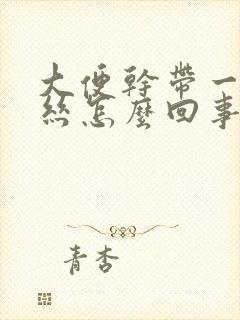 大便幹帶一
絲怎麼回事
青杏